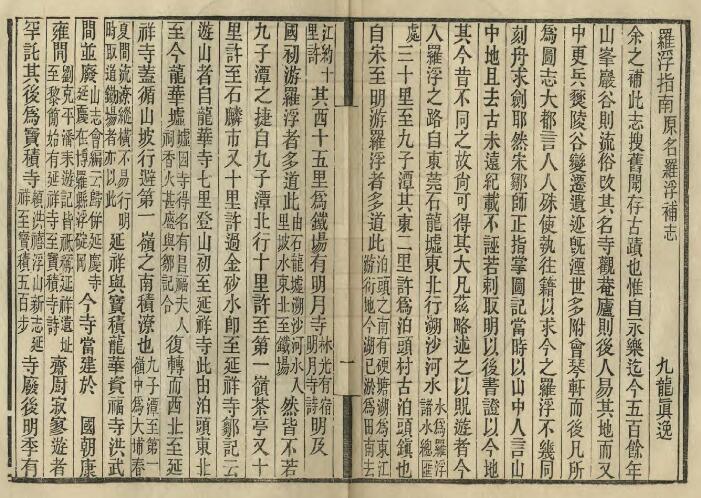 羅浮指南原名羅浮補志
九龍真逸
余之補此志搜舊聞存古蹟也惟自永樂迄今五百餘年
山峯巖谷則流俗改其名寺觀菴廬則後人易其地而又
中更兵燹陵谷變遷遺迹旣湮世多附會琴軒而後凡所
為圖志大都言人人殊使執往籍以求今之羅浮不幾同
刻舟求劍耶然宋鄒師正指掌圖記當時以山中人言山
中地且去古未遠紀載不誣若刺取明以後書證以今地
其今昔不同之故尙可得其大凡茲略述之以覬遊者今
人羅浮之路自東莞石龍墟東北行溯沙河水水為羅浮諸水總匯
處三十里至九子潭其東二里許為泊頭村古泊頭鎮也
自宋至明游羅浮者多道此泊頭之南有硬塘湖為東江游衍地今湖已淤為田南去
江約十里許其西十五里爲鐵場有明月寺林光有宿明月寺詩明及
國初游羅浮者多道此由石龍墟溯沙河水里坡水東北至鐵場人然皆不若
九子潭之捷自九子潭北行十里許至第一嶺茶亭又十
里許至石麟市又十里許過金砂水卽至延祥寺鄒記云
遊山者自龍華寺七里登山初至延祥寺此由泊頭東北
至今龍華墟墟因寺得名有昌福夫人祠香火甚盛與鄒記合復轉而西北至延
祥寺蓋循山坡行避第一嶺之南積潦也九子潭至第一嶺中為大埔春
夏間流潦縱橫不易行明時取道鐵場者亦以此延祥與寶積龍華資福寺洪武
間並廢山志會編云歸併延慶寺延慶在博羅縣浮碇岡今寺當建於 國朝康
雍間劉克平潘耒遊記皆祇稱延祥遺址至黎簡始有延祥寺至寶積寺詩齋廚寂寥遊者
罕託其後為寶積寺賴洪禧浮山新志延祥至寶積五百步寺廢後明季有